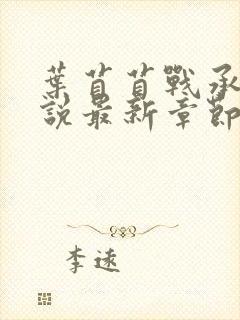 葉苜苜戰承
說最新章節
李遠